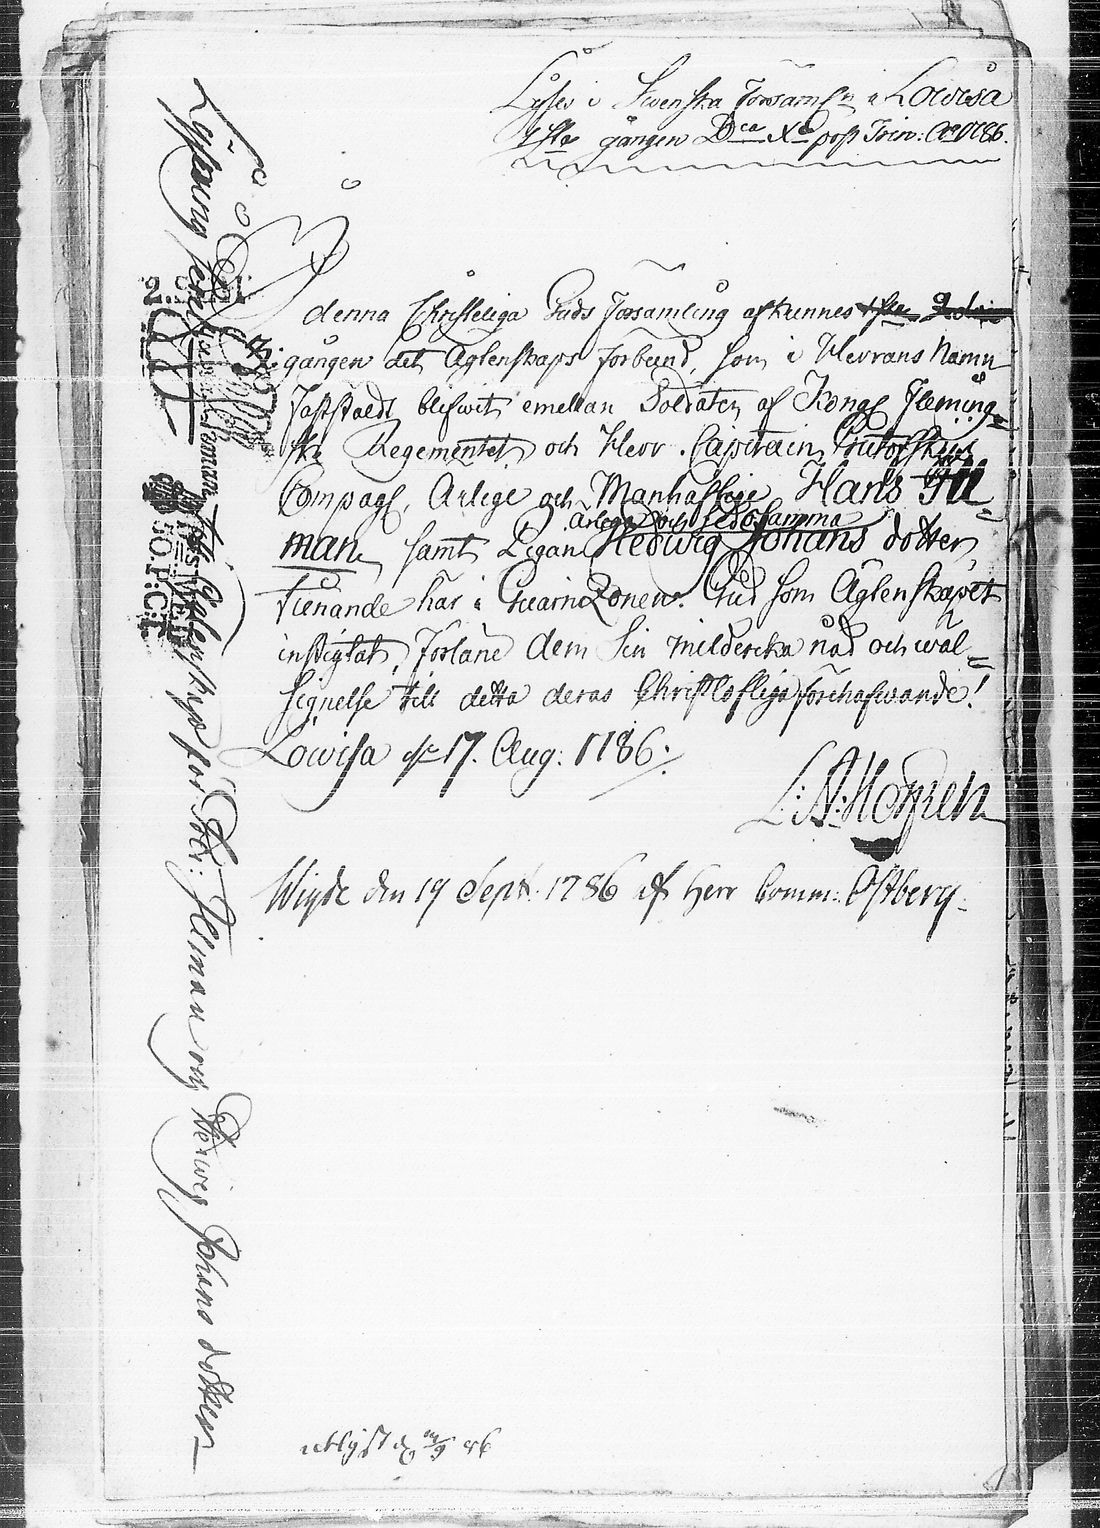 Lyses i Swenska Församl:n i Lovisa
1sta gången D:ca X:a post Trin: A:o 1786.
I
denna Christeliga Guds Församling afkunnes 1sta 2:dra
3:die gången det Ägtenskaps förbund, som i Herrans Namn
fastställt blifwit emellan Soldaten af Kongl Fleming-
ska Regementet och Herr Capitain
Compagi, Ärlige och Manhaftige Hans Ill-
man, samt Pigan Ärliga och Sedosamma Hedwig Johans dotter,
tienande här i Guarnizonen. Gud som Ägtenskapet
instigtat, förläne dem sin milderika nåd och wäl-
signelse till detta deras Christlofliga förehafwande!
Lovisa d. 17. Aug: 1786.
L: N: Hougren
Wigde den 19 Sept. 1786 af Herr Comm: Östberg.
Lyssning till Ägtenskap för Sold: Illman och Hedwig Johans dotter
2.
50.P:C:T
utlyst d. 86